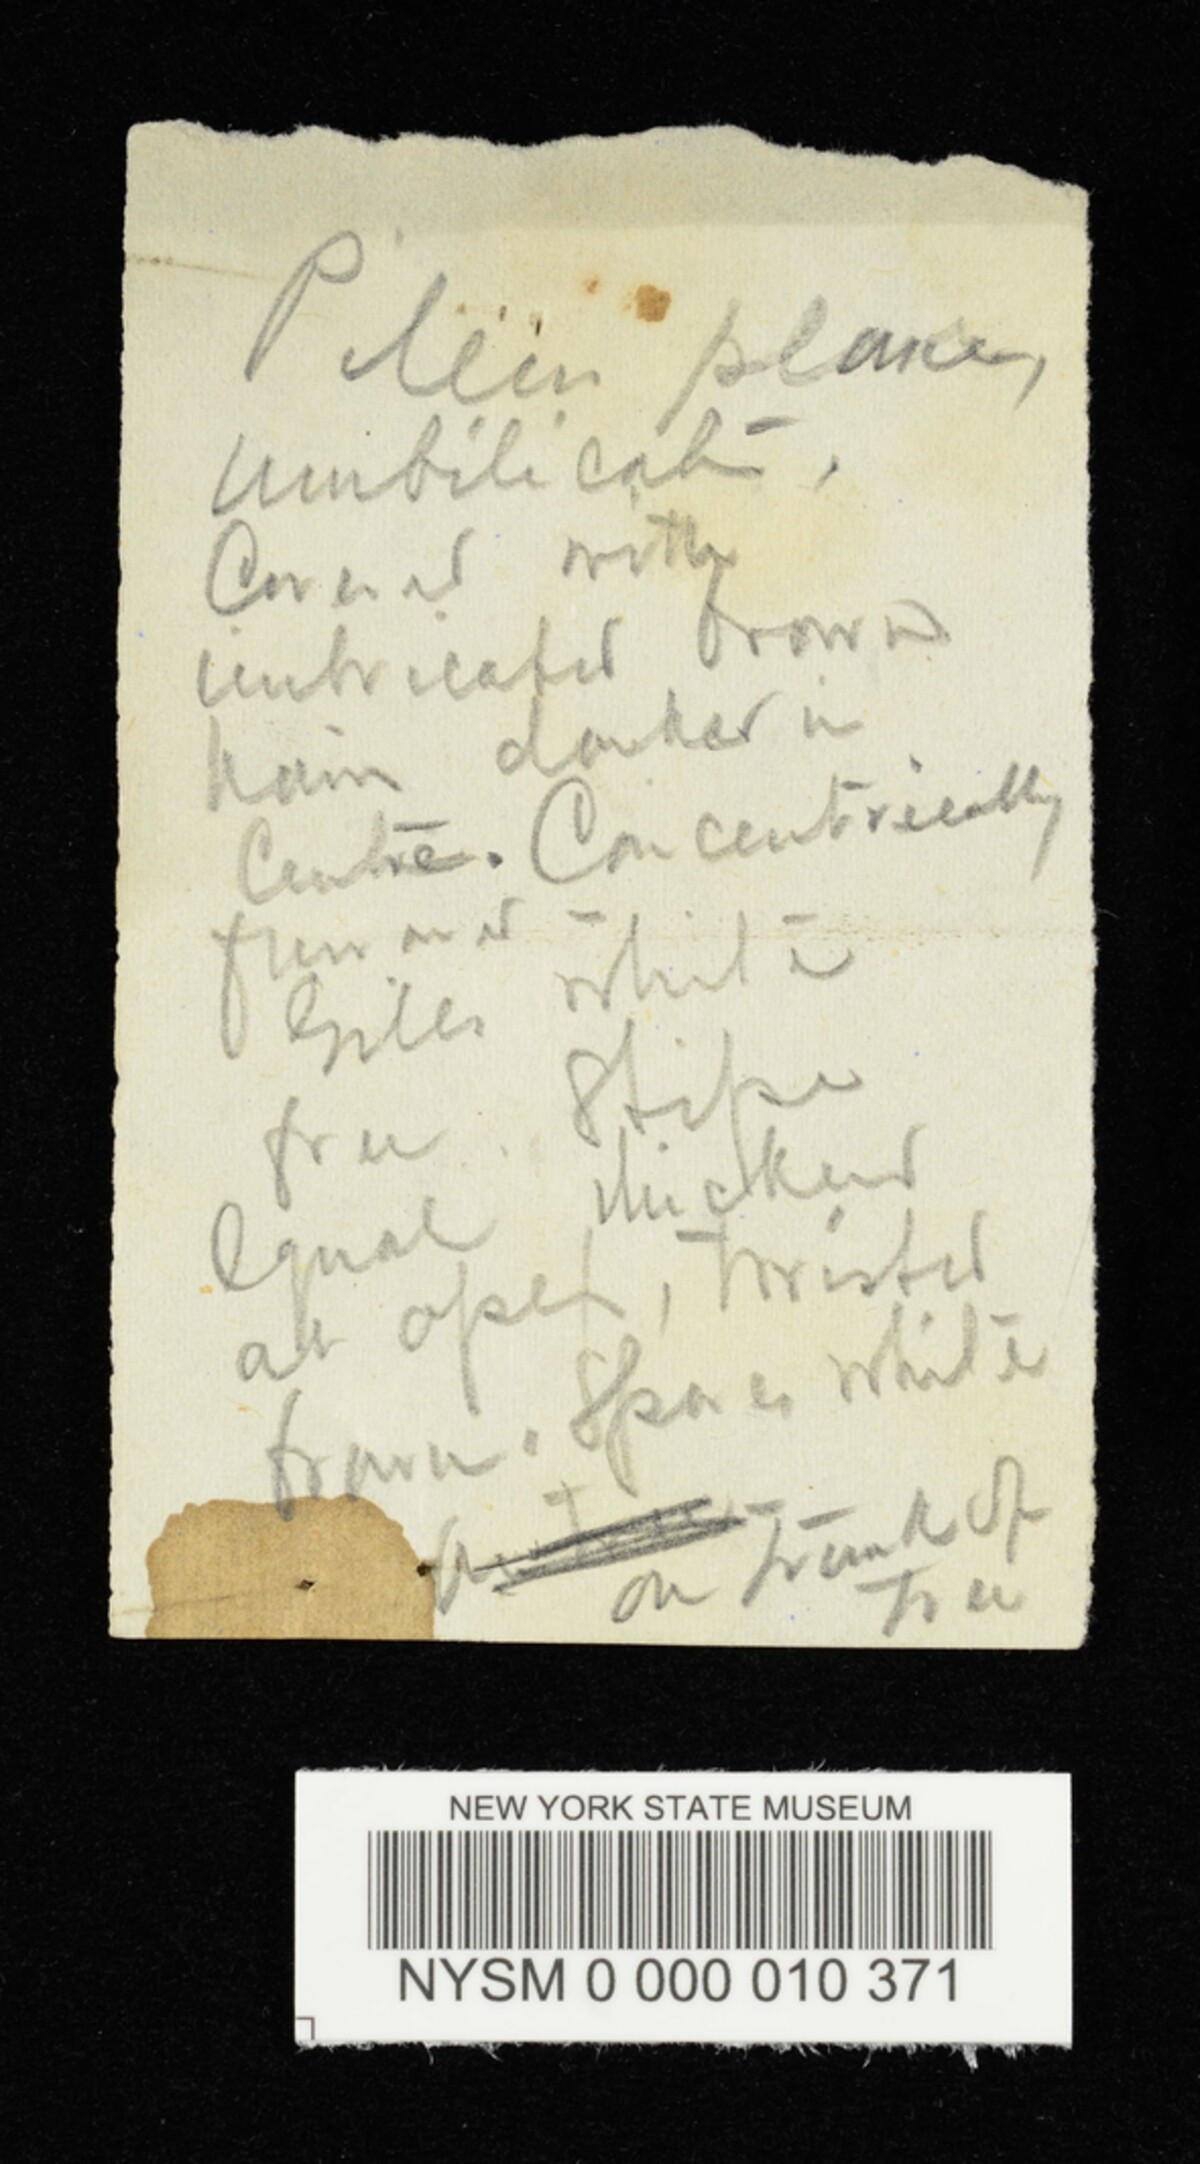 Pileus plane,
umbilicate,
Covered with
imbricated brown
hairs darker in
Centre. Concentrically
furrowed
Gills white
free. Stipe
Equal thickened
at apex, twisted
brown. Spores white
on trunk of
Tree
NEW YORK STATE MUSEUM
NYSM 0 000 010 371